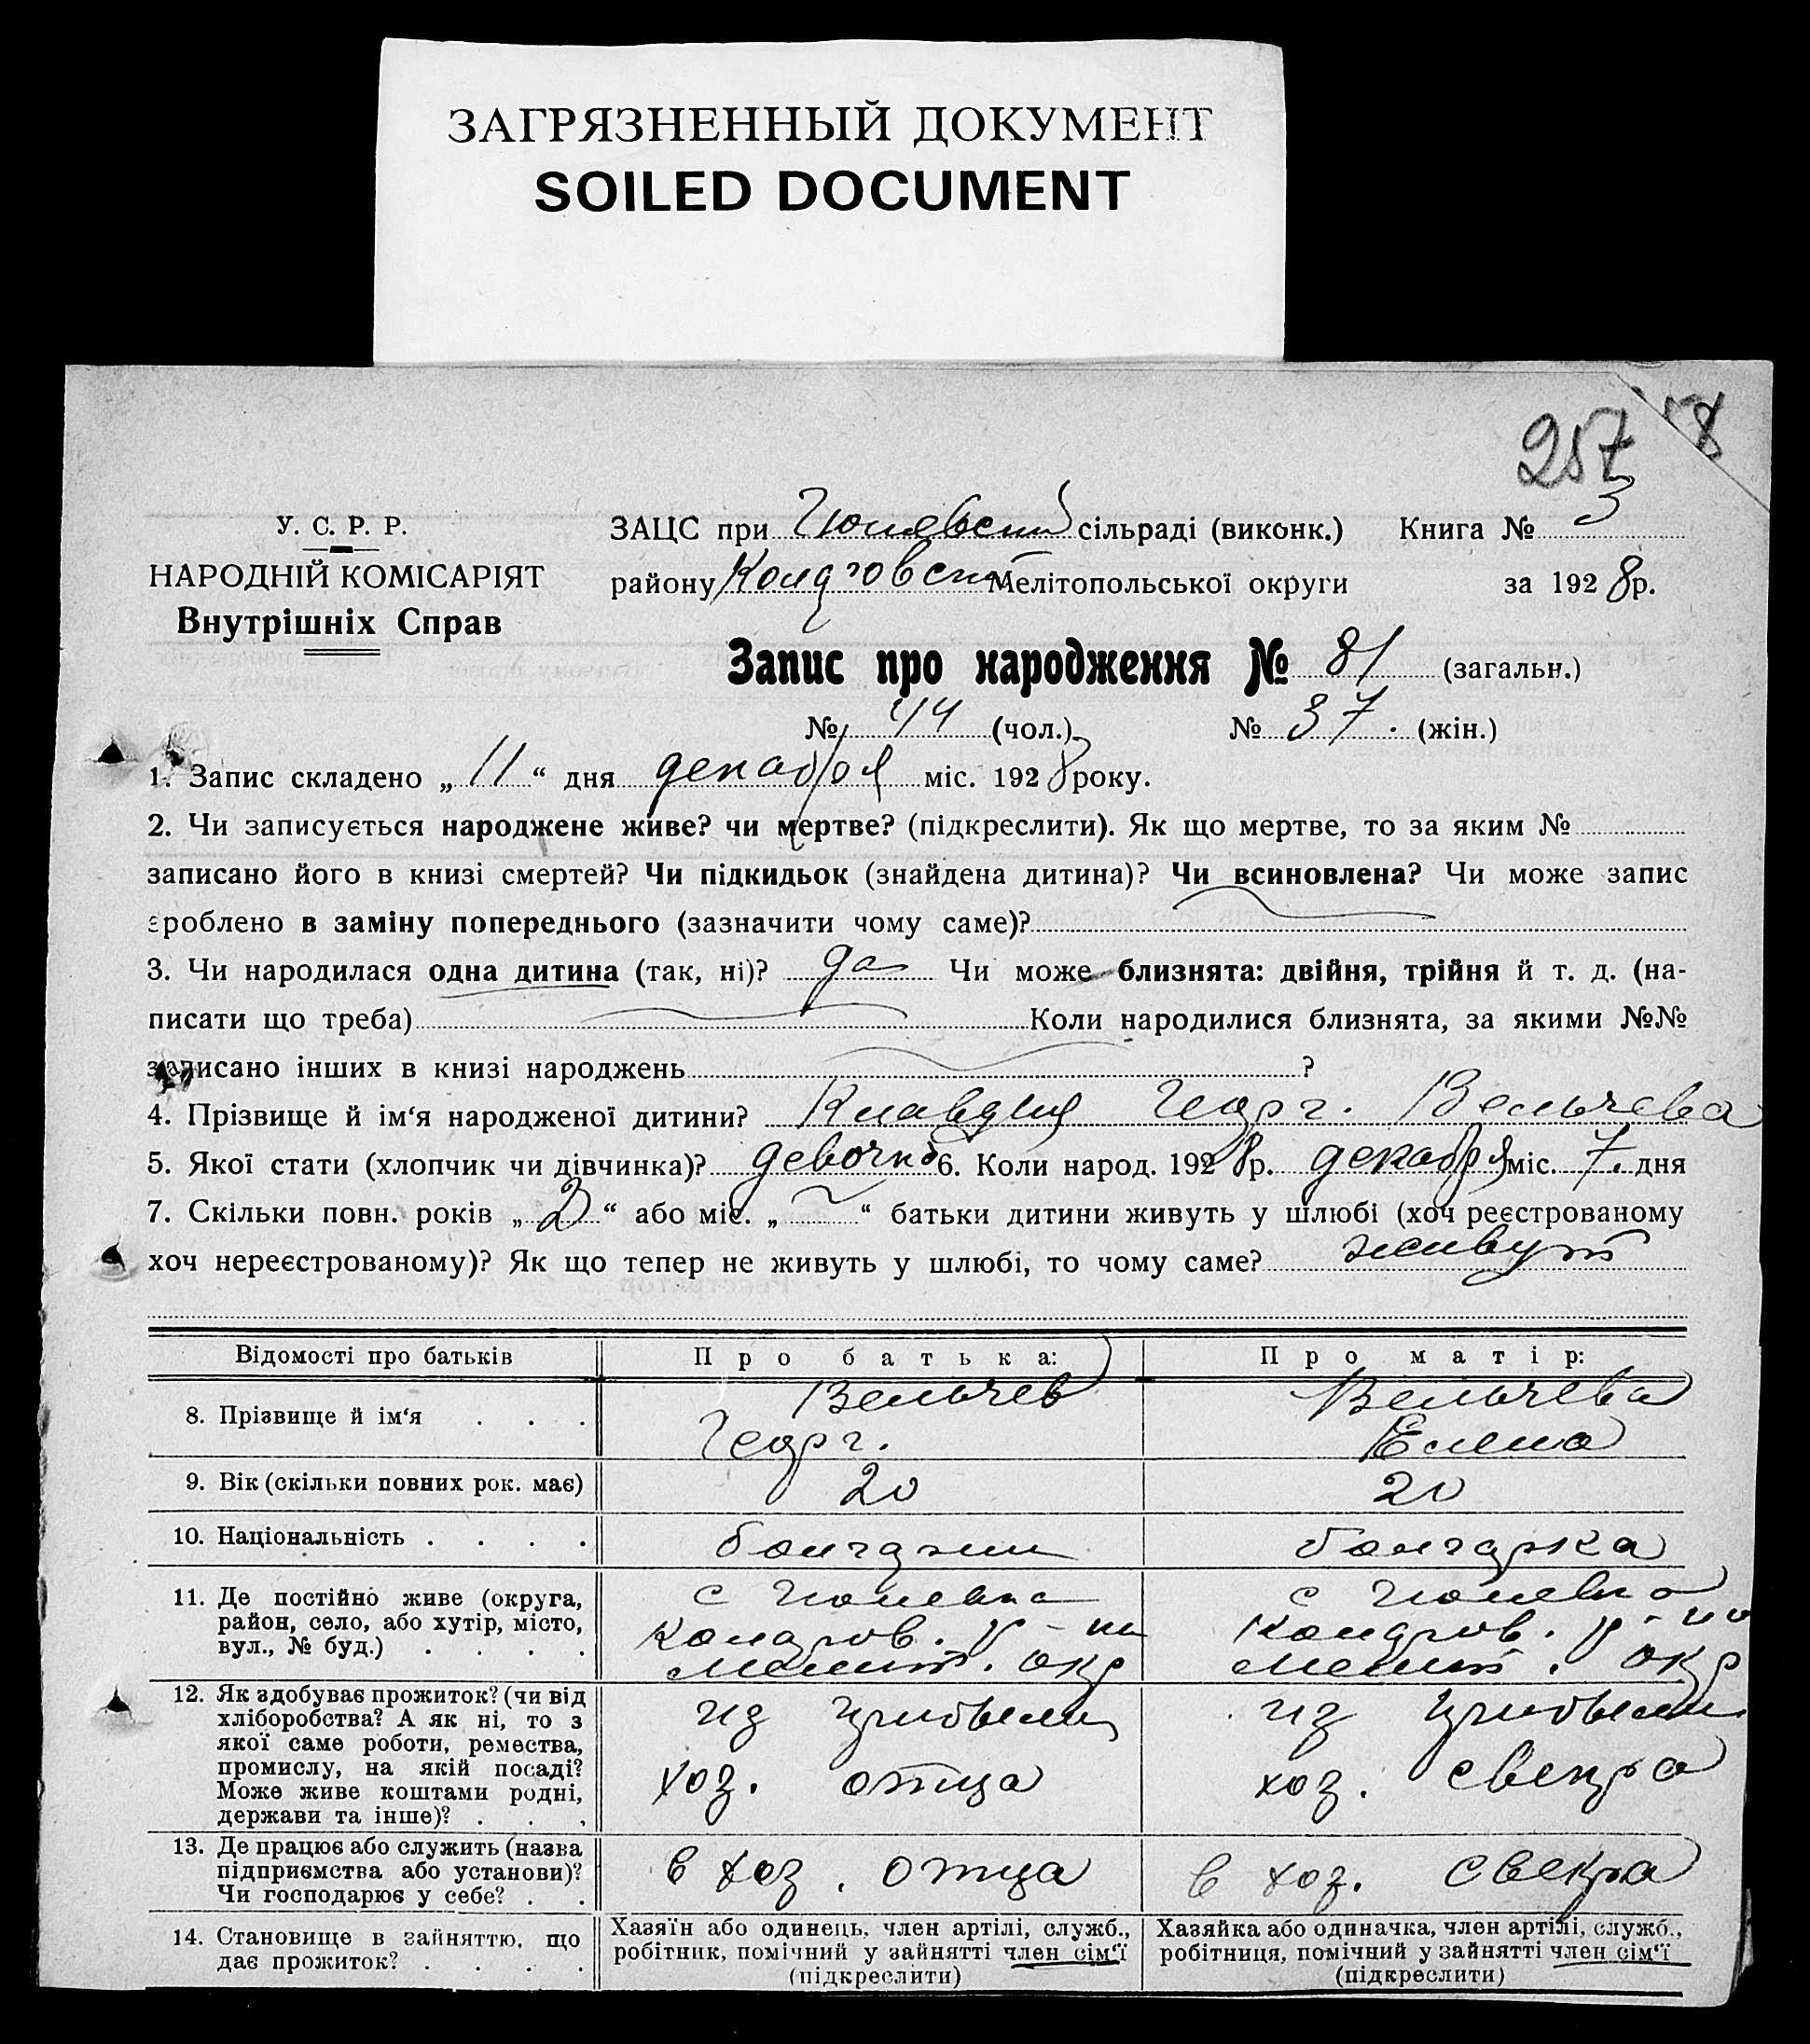 ЗАГРЯЗНЕННЫЙ ДОКУМЕНТ
SOILED DOCUMENT
257
8
У. С. Р. Р.
НАРОДНІЙ КОМІСАРІЯТ
Внутрішніх Справ
ЗАЦС при Гюневский сільраді (виконк.) Книга № 3
району Мелітопольської округи за 1928 р.
Запис про народження № 81 (загальн.)
№ 44 (чол.) № 37. (жін.)
1. Запис складено „11“ дня декабря міс. 1928 року.
2. Чи записується народжене живе? чи мертве? (підкреслити). Як що мертве, то за яким №
записано його в книзі смертей? Чи підкидьок (знайдена дитина)? Чи всиновлена? Чи може запис
зроблено в заміну попереднього (зазначити чому саме)?
3. Чи народилася одна дитина (так, ні)? да Чи може близнята: двійня, трійня й т. д. (на-
писати що треба) Коли народилися близнята, за якими №№
записано інших в книзі народжень ?
4. Прізвище й ім‘я народженої дитини? Клавдия Георг. Вельчева
5. Якої стати (хлопчик чи дівчинка)? девочка 6. Коли народ. 1928 р. декабря міс. 7. дня
7. Скільки повн. років „2“ або міс. „-“ батьки дитини живуть у шлюбі (хоч реєстрованому
хоч нереєстрованому)? Як що тепер не живуть у шлюбі, то чому саме? живут
Відомості про батьків
Про батька:
Про матір:
8. Прізвище й ім‘я . . .
Вельчев
Георг.
Вельчева
Елена
9. Вік (скільки повних рок. має)
20
20
10. Національність . . . .
болгарин
болгарка
11. Де постійно живе (округа,
район, село, або хутір, місто,
вул., № буд.) . . . .
с Гюневка
Коларов. р-на
Мелит. окр
с Гюневка
Коларов. р-на
Мелит. окр
12. Як здобуває прожиток? (чи від
хліборобства? А як ні, то з
якої саме роботи, ремества,
промислу, на якій посаді?
Може живе коштами родні,
держави та інше)? . . .
из прибыли
хоз. отца
из прибыли
хоз. свекра
13. Де працює або служить (назва
підприємства або установи)?
Чи господарює у себе? . .
в хоз. отца
в хоз. свекра
14. Становище в зайняттю, що
дає прожиток? . . . .
Хазяїн або одинець, член артілі, служб.,
робітник, помічний у зайнятті член сім‘ї
(підкреслити)
Хазяйка або одиначка, член артілі, служб.,
робітниця, помічний у зайнятті член сім‘ї
(підкреслити)